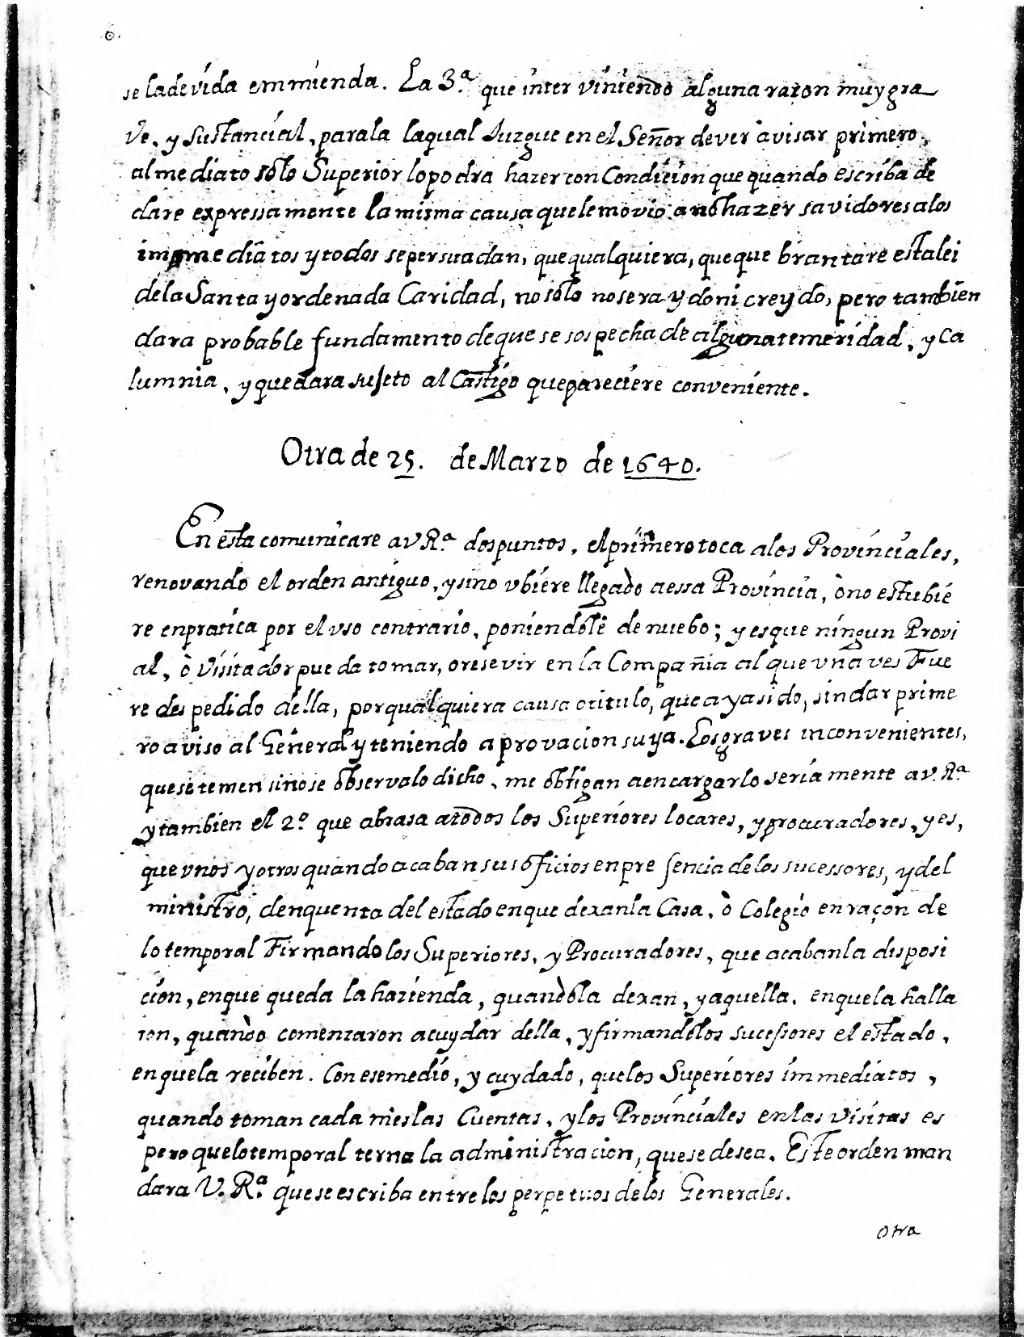 6.
se la devida emmienda. La 3.ª que inter viniendo alguna razon muy gra
ve, y sustancial, para la la qual Juzgue en el Señor dever avisar primero,
al mediato solo Superior lo podra hazer con Condicion que quando escriba de
clare expressamente la misma causa que le movio a no hazer savidores a los
immediatos y todos se persuadan, que qualquiera, que que brantare esta lei
de la Santa y ordenada Caridad, no solo no sera ydoni creydo, pero tambien
dara probable fundamento de que se sospecha de alguna temeridad, y Ca
lumnia, y quedara sujeto al Castigo que pareciere conveniente.
Otra de 25. de Marzo de 1640.
En esta comunicare a V R.ª dos puntos, el primero toca a los Provinciales,
renovando el orden antiguo, y sino vbiere llegado a essa Provincia, ò no estubie
re en pratica por el vso contrario, poniendole de nuebo; y es que ningun Provi
al, ò Visitador pueda tomar, o resevir en la Compañia al que vna ves Fue
re despedido della, por qualquiera causa o titulo, que aya sido, sin dar prime
ro aviso al General y teniendo aprovacion suya. Los graves inconvenientes,
que se temen sino se observa lo dicho, me obligan a encargarlo seria mente a V. R.ª
y tambien el 2.º que abrasa a todos los Superiores locares, y procuradores, y es,
que vnos y otros quando acaban sus oficios en presencia de los sucessores, y del
ministro, den quenta del estado en que dexan la Casa, ò Colegio en raçon de
lo temporal Firmando los Superiores, y Procuradores, que acaban la disposi
cion, en que queda la hazienda, quando la dexan, y aquella, en que la halla
ron, quando comenzaron a cuydar della, y firmando los sucessores el estado,
en que la reciben. Con ese medio, y cuydado, que los Superiores immediatos,
quando toman cada mes las Cuentas, y los Provinciales en las Visitas es
pero que lo temporal terna la administracion, que se desea. Este orden man
dara V. R.ª que se escriba entre los perpetuos de los Generales.
Otra